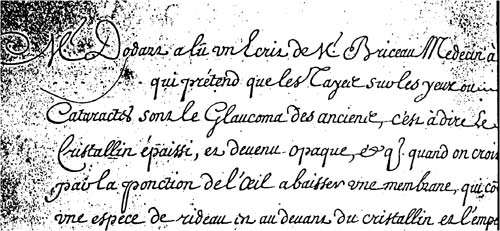 Mr Dodart a lû vn Ecris de Mr Briceau Medecin a
qui prétend que les Tayes sur les yeux ou
Cataractes sont le Glaucoma des anciens, c'est à dire le
Cristallin épaissi, et deuenu opaque, et q̃ quand on crois
par la ponction de l'Œil abaisser vne membrane, qui co
vne espece de rideau in au deuant du cristallin et l'empe